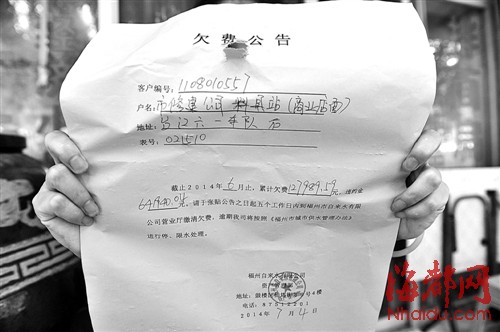 欠费公告
客户编号:1108010557
户名:市修建公司料具站(商业店面)
地址:台江六一中队右
表号:021510
截止2014年6月止,累计欠费127989.59元,违约金
元,请于张贴公告之日起五个工作日内到福州市自来水有限
公司营业厅缴清欠费,逾期我司将按照《福州市城市供水管理办法》
进行停、限水处理。
福州自来水有限公司
地址:鼓楼区 号4楼
电话:87512201
2014年7月4日
海都网
Nhaidu.com